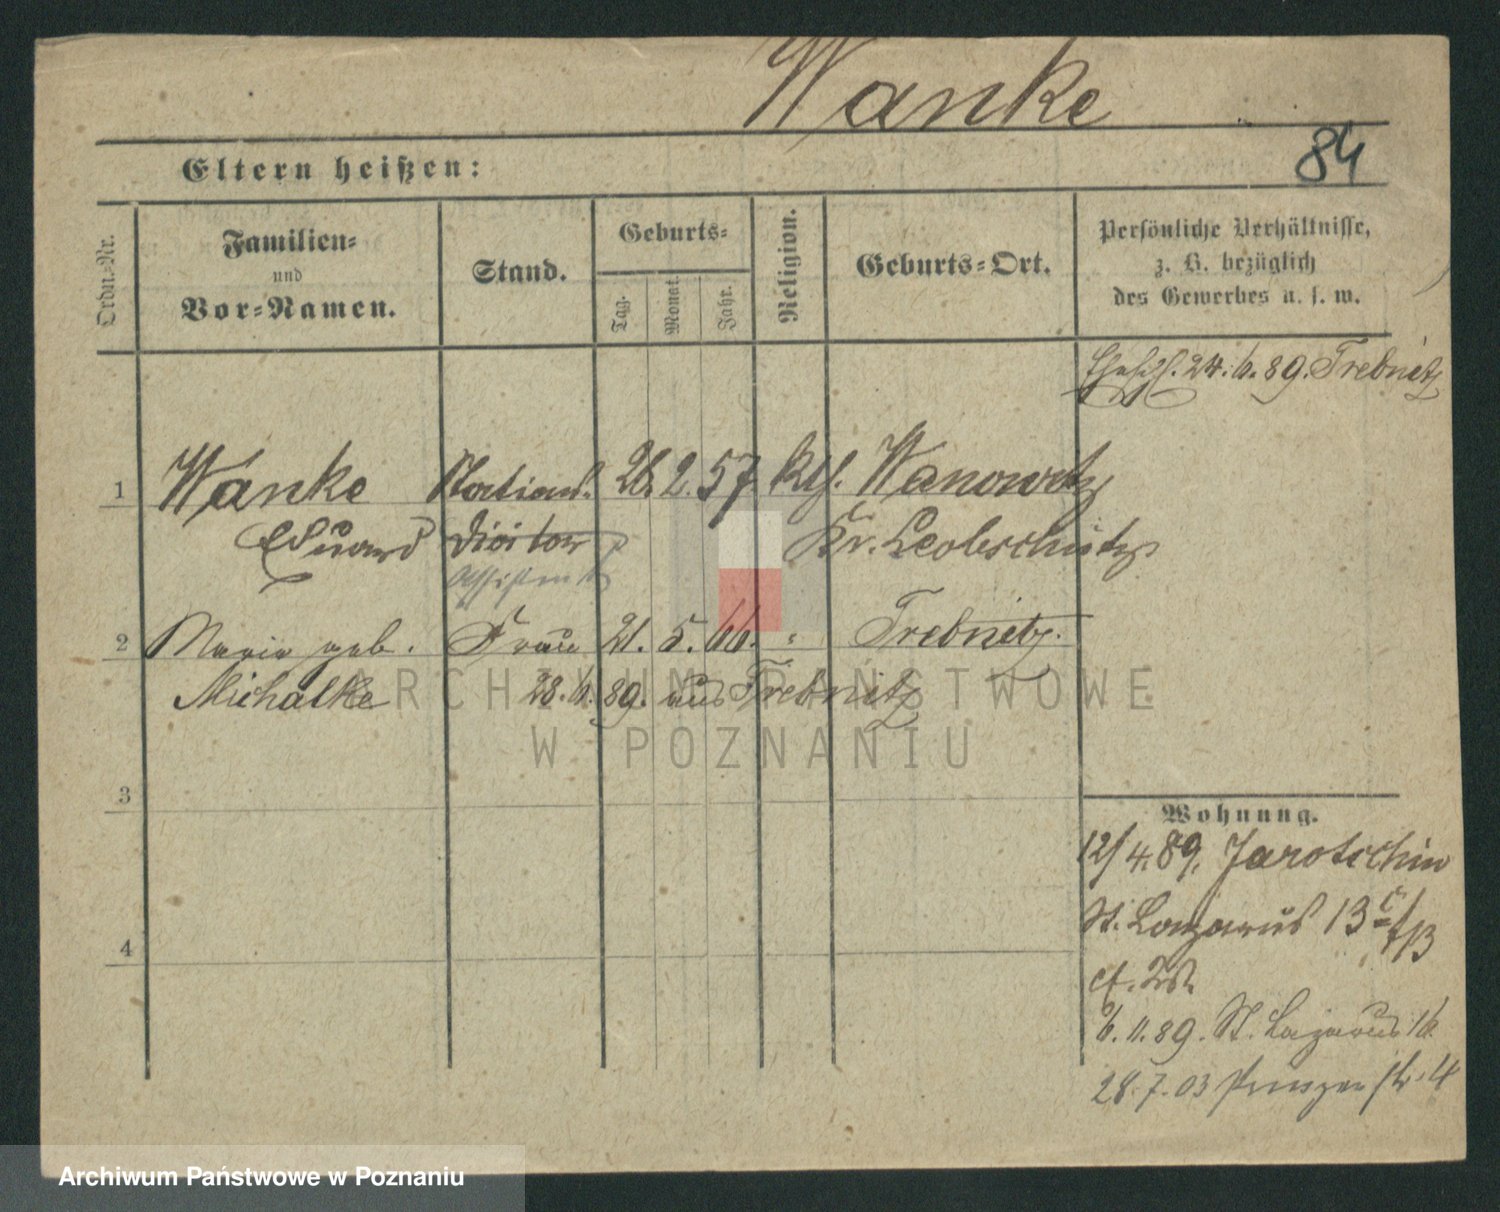 Wanke
84
Eltern heißen:
Ordn.-Nr.
Familien-
und
Vor-Namen.
Stand.
Geburts-
Tag.
Monat.
Jahr.
Religion.
Geburts-Ort.
Persönliche Verhältnisse,
z. B. bezüglich
des Gewerbes u. s. w.
24. 6. 89. Trebnitz
1 Wanke Stations. 26. 2. 57 Kth. Wanowitz
Eduard Diätar Kr. Leobschütz
Assistent
2 Maria geb. Frau 21. 5. 66. " Trebnitz.
Michalke 28. 6. 89. aus Trebnitz
ARCHIWUM PAŃSTWOWE
W POZNANIU
3
Wohnung.
12/4. 89. Jarotschin
St. Lazarus 13
4
6. 11. 89. St. Lazarus 16
28. 7. 03 Prinzenstr. 4
Archiwum Państwowe w Poznaniu